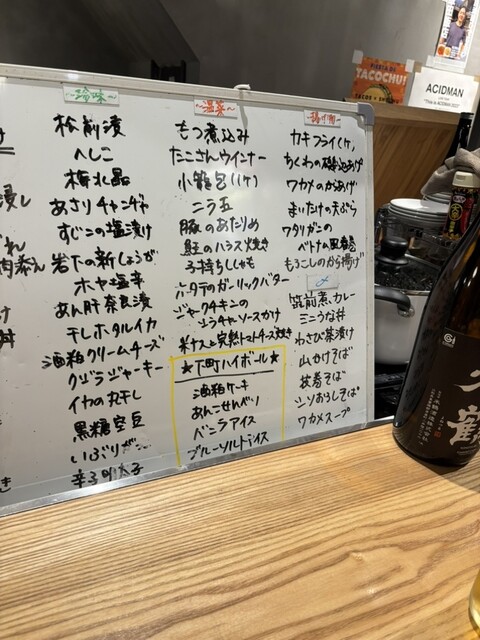 ~珍味~
松前漬
へしこ
梅水晶
あさりチャンヂャ
すじこの塩漬け
岩下の新しょうが
ホヤ塩辛
あん肝奈良漬
干しホタルイカ
酒粕クリームチーズ
クジラジャーキー
イカの丸干し
黒糖空豆
いぶりがっこ
辛子明太子
~温菜~
もつ煮込み
たこさんウインナー
小籠包(1ケ)
ニラ玉
豚のあたりめ
鮭のハラス焼き
子持ちししゃも
ホタテのガーリックバター
ジャークチキンの
米ナスと完熟トマトチーズ焼き
★下町ハイボール★
酒粕ケーキ
あんこせんべい
バニラアイス
ブルーソルトアイス
~揚げ物~
カキフライ(1ケ)
ちくわの磯辺あげ
ワカメのからあげ
まいたけの天ぷら
ワタリガニの
ベトナム風春巻
もろこしのから揚げ
〆
筑前煮カレー
ミニうな丼
わさび茶漬け
山かけそば
抜巻そば
シソおろしそば
ワカメスープ
FIESTA DE
TACOCHU!
ACIDMAN